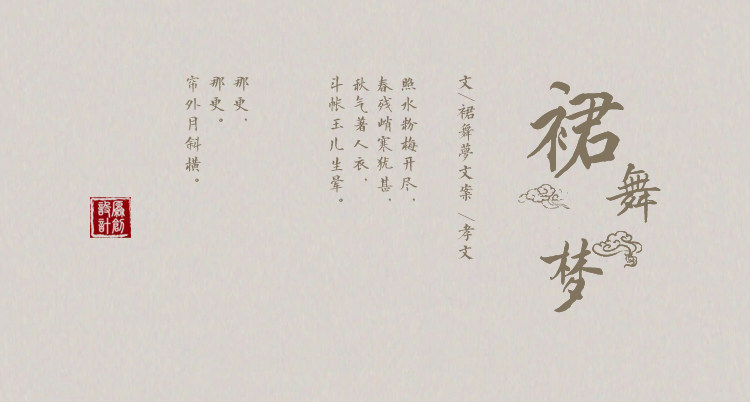 裙舞梦
文\裙舞夢文案 \孝文
照水粉梅开尽，
春残峭寒犹甚，
秋气著人衣，
斗帐玉儿生晕。
那更，
那更。
帘外月斜横。
原创
設計